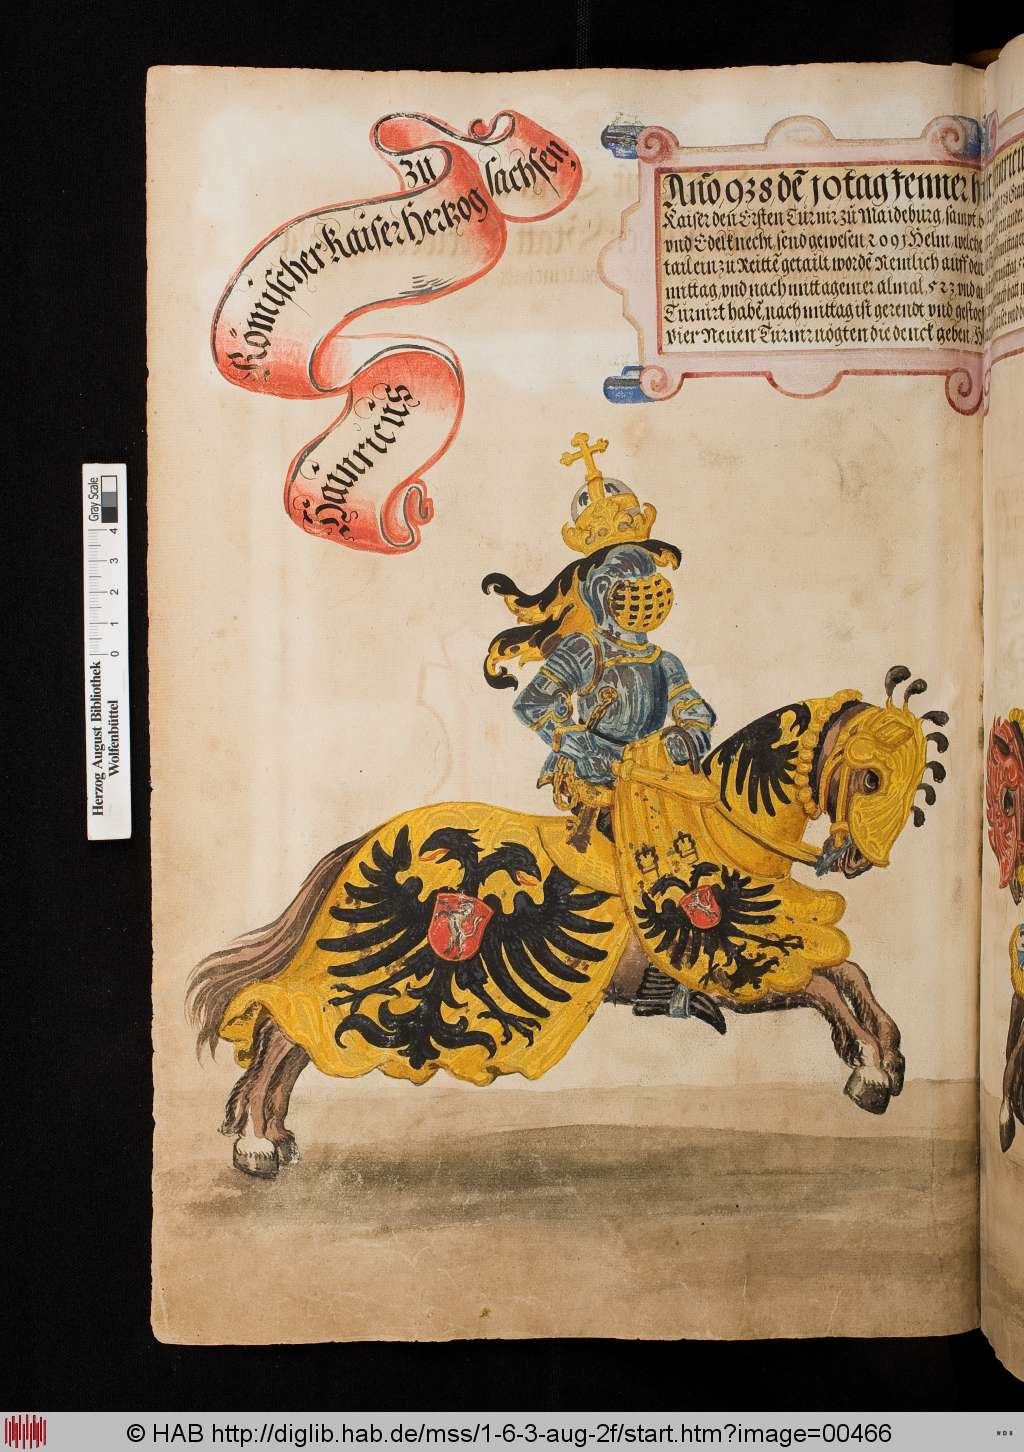 Hainricus
Römischer Kaiser Hertzog
zu
sachsen
Añno 938 dē 10 tag Jenner
Kaiser den Ersten Turnir zu Maideburg, sampt
und Edelknecht, send gewesen 2091 Helm, welche
tail ein zu Reittē getailt wordē Nemlich auff den
mittag, und nach mittag einer almal, 523 und
Turnirt habē, nach mittag ist gerendt und gestoch
vier Neuen Turniruögten die denck geben
Herzog August Bibliothek
Wolfenbüttel
0 1 2 3 4
Gray Scale
© HAB http://diglib.hab.de/mss/1-6-3-aug-2f/start.htm?image=00466